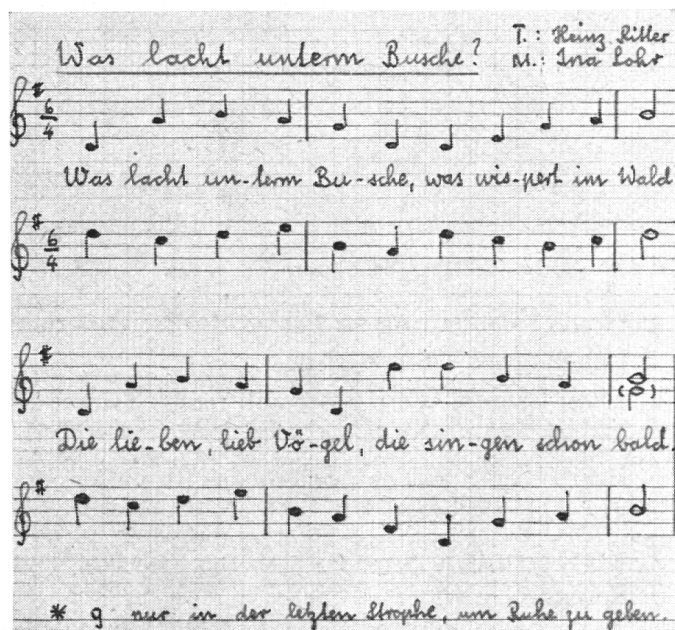 Was lacht unterm Busche?
T.: Heinz Ritter
M.: Ina Lohr
6/4
Was lacht un-term Bu-sche, was wis-pert im Wald
6/4
Die lie-ben, lieb Vö-gel, die sin-gen schon bald.
* g nur in der letzten Strophe, um Ruhe zu geben.